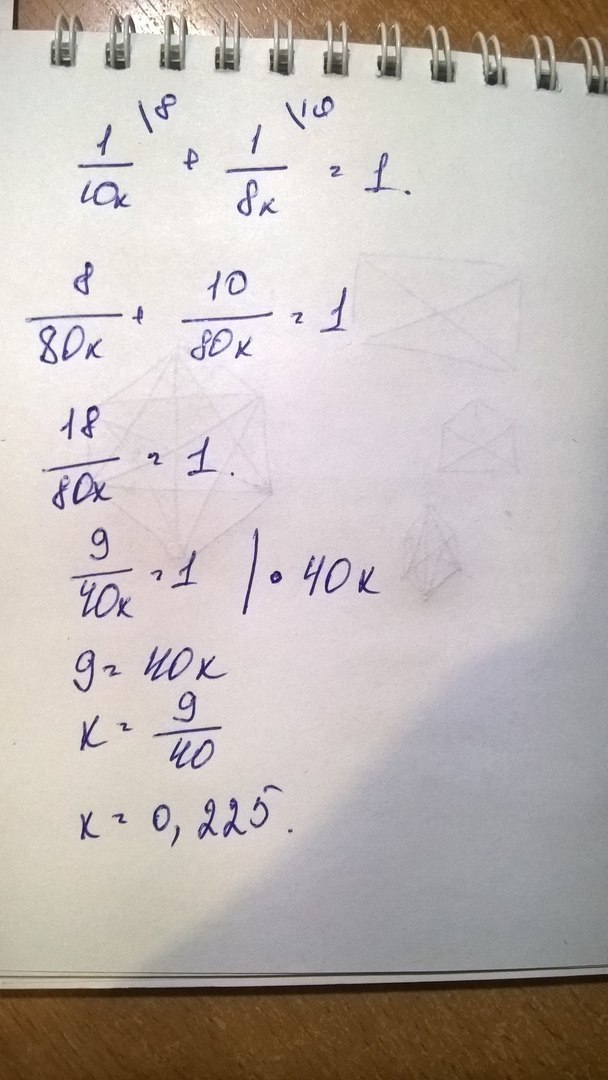 1/10x \8 + 1/8x \10 = 1.
8/80x + 10/80x = 1
18/80x = 1.
9/40x = 1 | · 40x
9 = 40x
x = 9/40
x = 0,225.